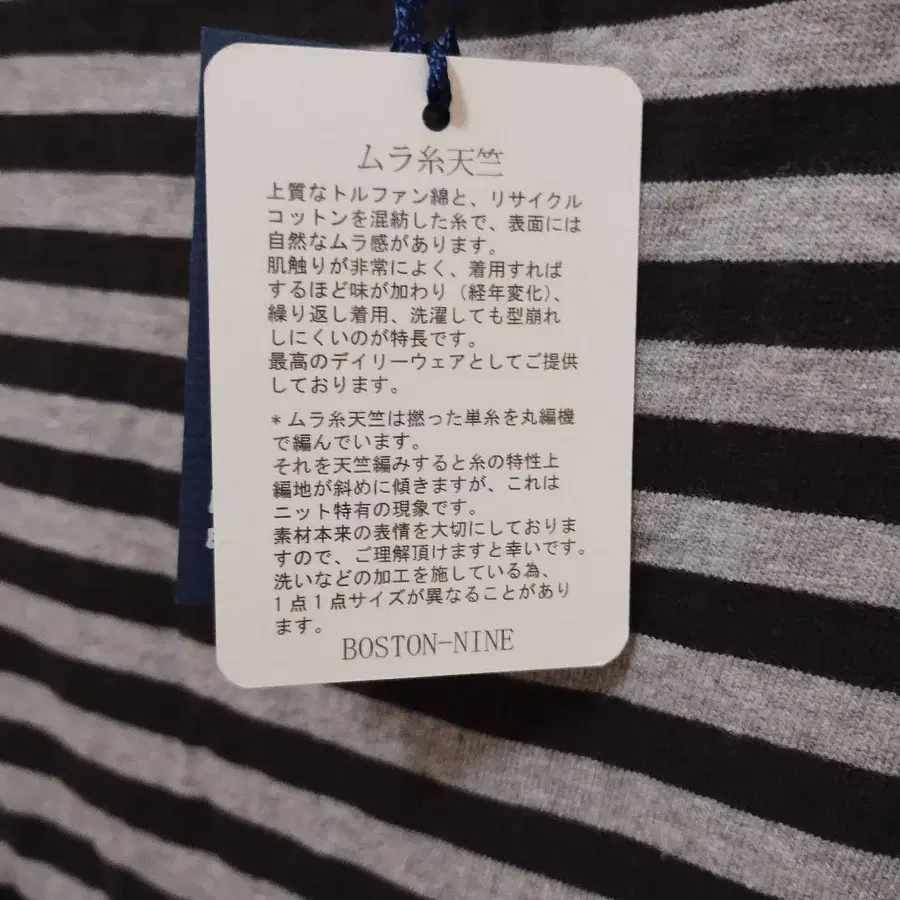 ムラ糸天竺
上質なトルファン綿と、リサイクル
コットンを混紡した糸で、表面には
自然なムラ感があります。
肌触りが非常によく、着用すれば
するほど味が加わり（経年変化）、
繰り返し着用、洗濯しても型崩れ
しにくいのが特長です。
最高のデイリーウェアとしてご提供
しております。
＊ムラ糸天竺は撚った単糸を丸編機
で編んでいます。
それを天竺編みすると糸の特性上
編地が斜めに傾きますが、これは
ニット特有の現象です。
素材本来の表情を大切にしておりま
すので、ご理解頂けますと幸いです。
洗いなどの加工を施している為、
１点１点サイズが異なることがあり
ます。
BOSTON-NINE